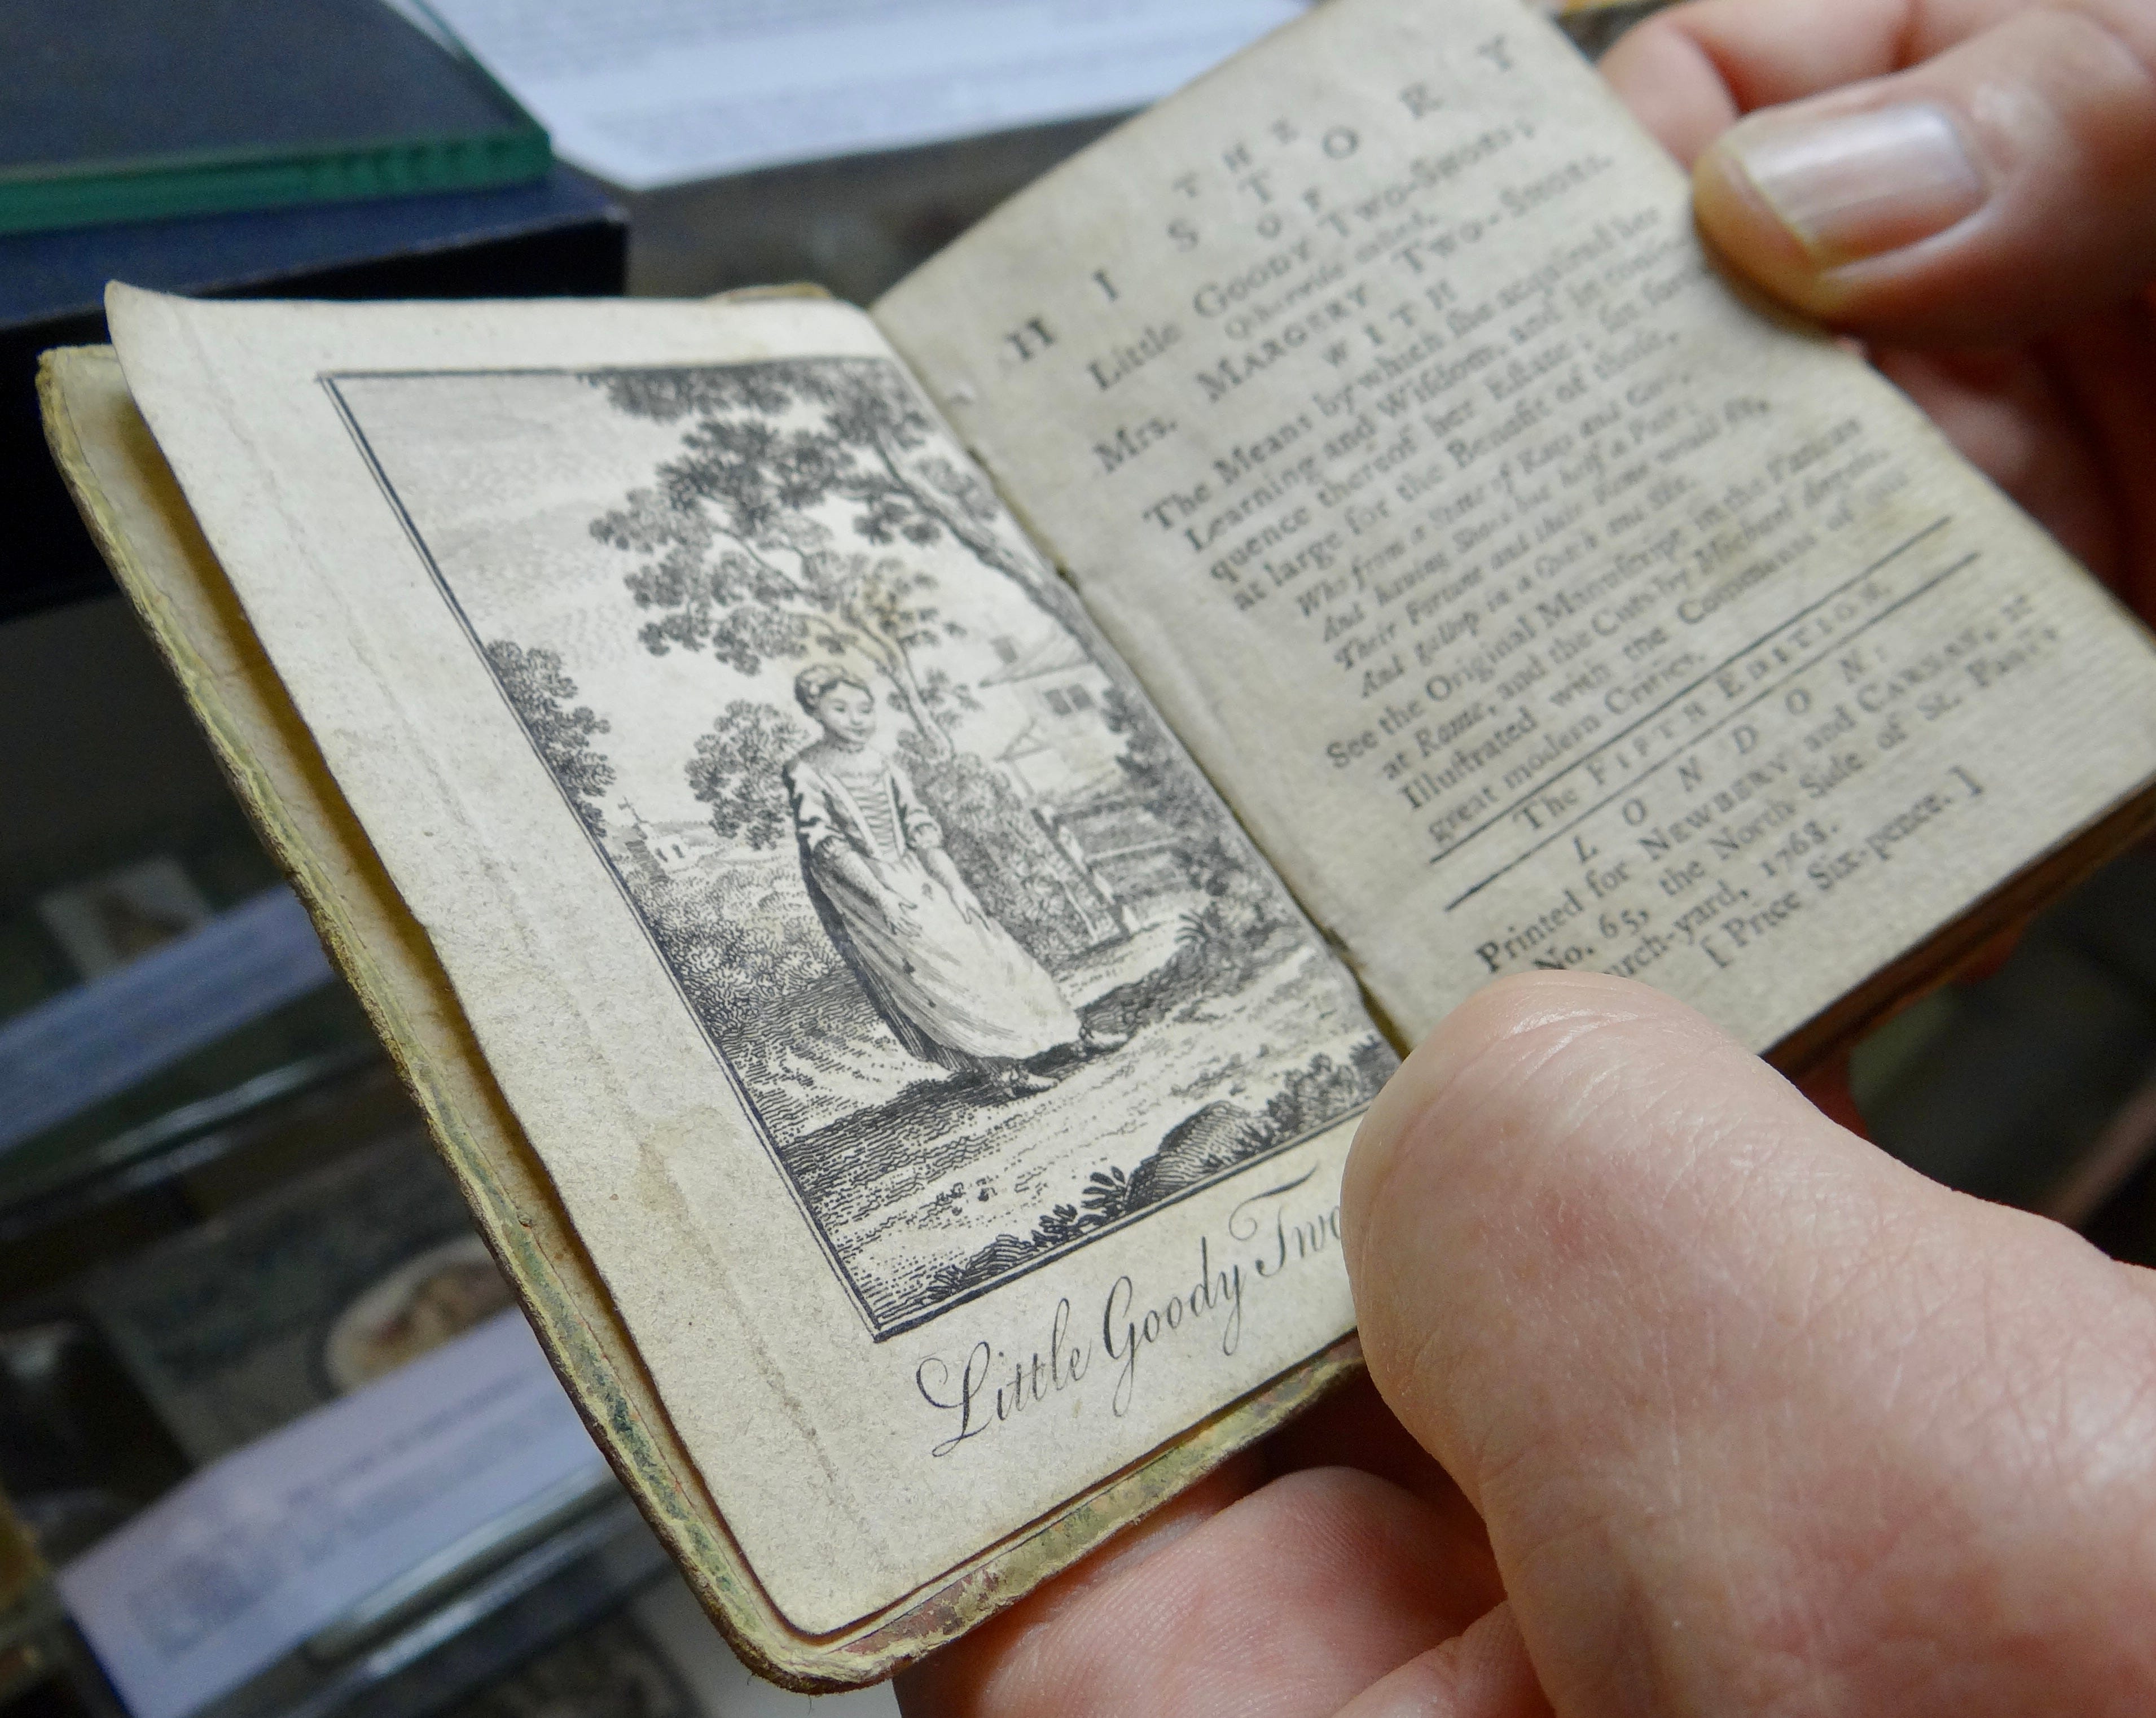 Little Goody Two
THE
HISTORY
OF
Little GOODY TWO-SHOES;
Otherwise called,
Mrs. MARGERY TWO-SHOES.
WITH
The Means by which she acquired her
Learning and Wisdom, and in conse-
quence thereof her Estate; set forth
at large for the Benefit of those,
Who from a State of Rags and Care,
And having Shoes but half a Pair;
Their Fortune and their Fame would fix,
And gallop in a Coach and Six.
See the Original Manuscript in the Vatican
at Rome, and the Cuts by Michael Angelo.
Illustrated with the Comments of our
great modern Critics.
The FIFTH EDITION.
LONDON:
Printed for NEWBERY and CARNAN, at
No. 65, the North Side of St. Paul's
urch-yard, 1768.
[Price Six-pence.]